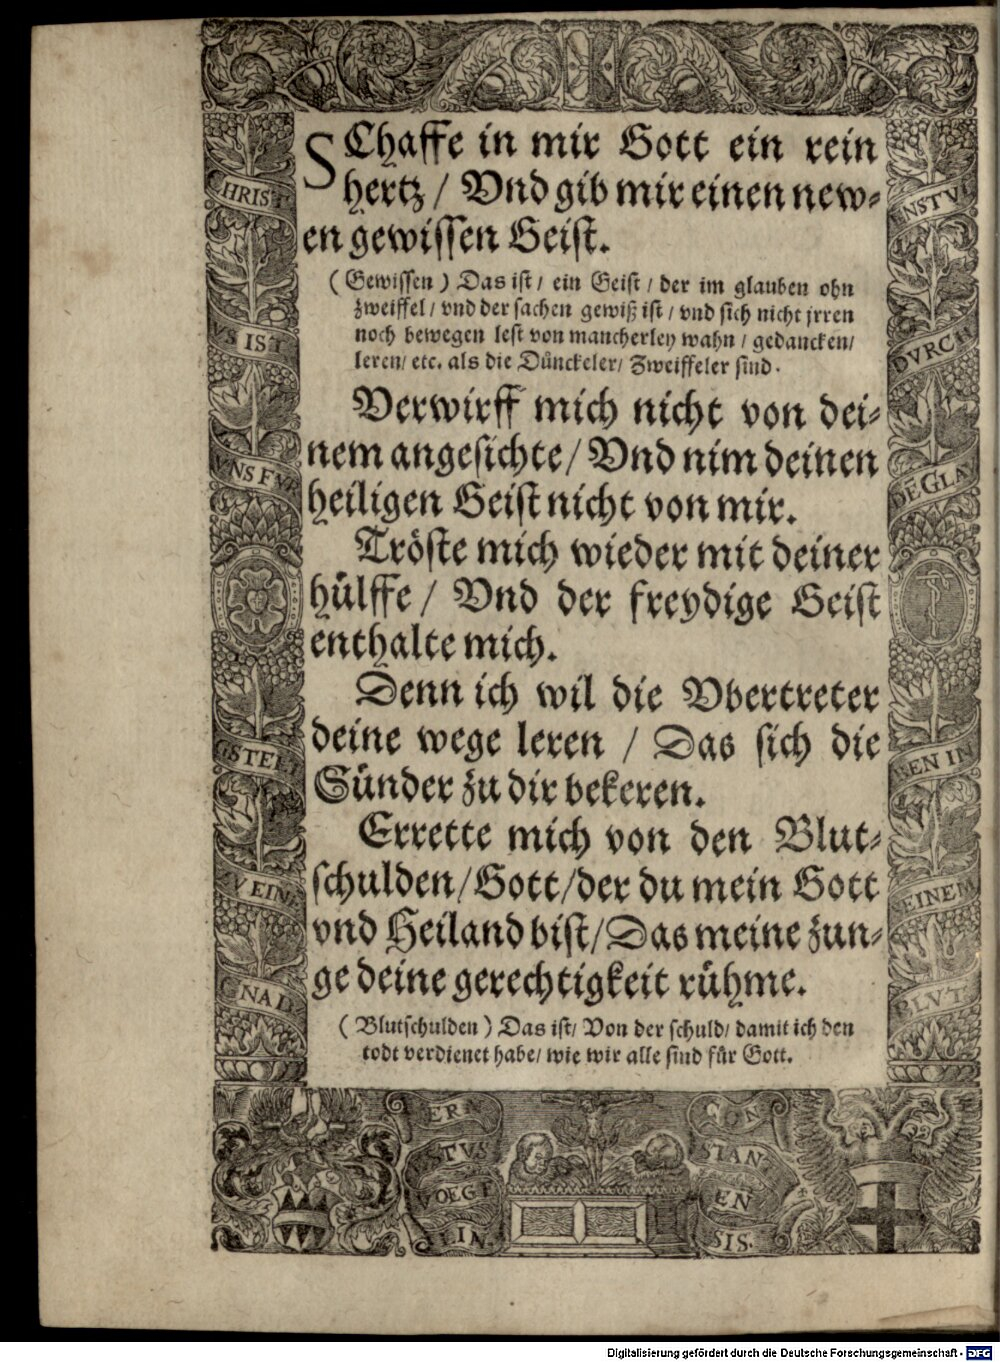 SChaffe in mir Gott ein rein
hertz / Vnd gib mir einen new⸗
en gewissen Geist.
( Gewissen ) Das ist / ein Geist / der im glauben ohn
zweiffel / vnd der sachen gewiß ist / vnd sich nicht jrren
noch bewegen lest von mancherley wahn / gedancken /
leren / etc. als die Dünckeler / Zweiffeler sind.
Verwirff mich nicht von dei⸗
nem angesichte / Vnd nim deinen
heiligen Geist nicht von mir.
Tröste mich wieder mit deiner
hülffe / Vnd der freydige Geist
enthalte mich.
Denn ich wil die Vbertreter
deine wege leren / Das sich die
Sünder zu dir bekeren.
Errette mich von den Blut⸗
schulden / Gott / der du mein Gott
vnd Heiland bist / Das meine zun⸗
ge deine gerechtigkeit rühme.
( Blutschulden ) Das ist / Von der schuld / damit ich den
todt verdienet habe / wie wir alle sind für Gott.
HRIST
VS IST
VNS FVR
GSTEL
V EIN
GNAD
ENSTVL
DVRCH
DE GLA
BEN IN
EINEM
BLVT
ERN
ESTVS
VOEGE
LIN.
CON
STAN
EN
SIS.
Digitalisierung gefördert durch die Deutsche Forschungsgemeinschaft - DFG